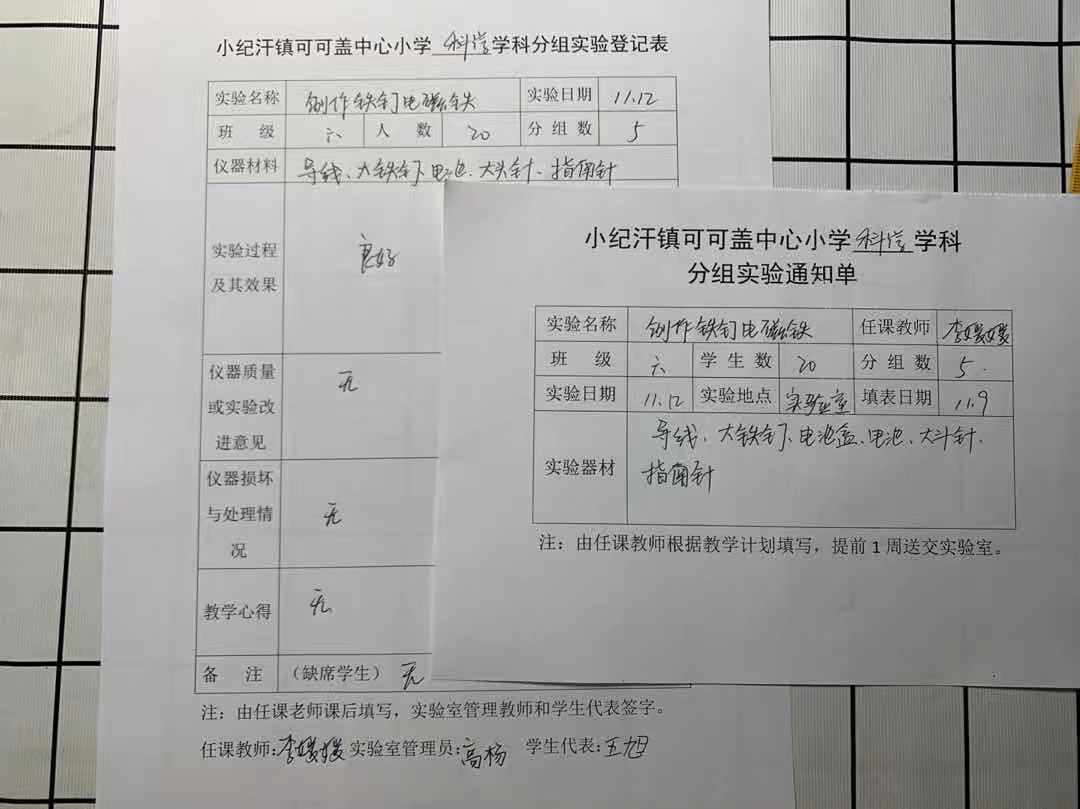 小纪汗镇可可盖中心小学 科学 学科分组实验登记表
实验名称 制作铁钉电磁铁 实验日期 11.12
班 级 六 人 数 20 分 组 数 5
仪器材料 导线、大铁钉、电池、大头针、指南针
实验过程
及其效果
良好
仪器质量
或实验改
进意见
无
仪器损坏
与处理情
况
无
教学心得 无
备 注 (缺席学生) 无
注：由任课老师课后填写，实验室管理教师和学生代表签字。
任课教师:李媛媛 实验室管理员:高杨 学生代表:王旭
小纪汗镇可可盖中心小学 科学 学科
分组实验通知单
实验名称 制作铁钉电磁铁 任课教师 李媛媛
班 级 六 学 生 数 20 分 组 数 5.
实验日期 11.12 实验地点 实验室 填表日期 11.9
实验器材 导线、大铁钉、电池盒、电池、大头针、
指南针
注：由任课教师根据教学计划填写，提前 1 周送交实验室。